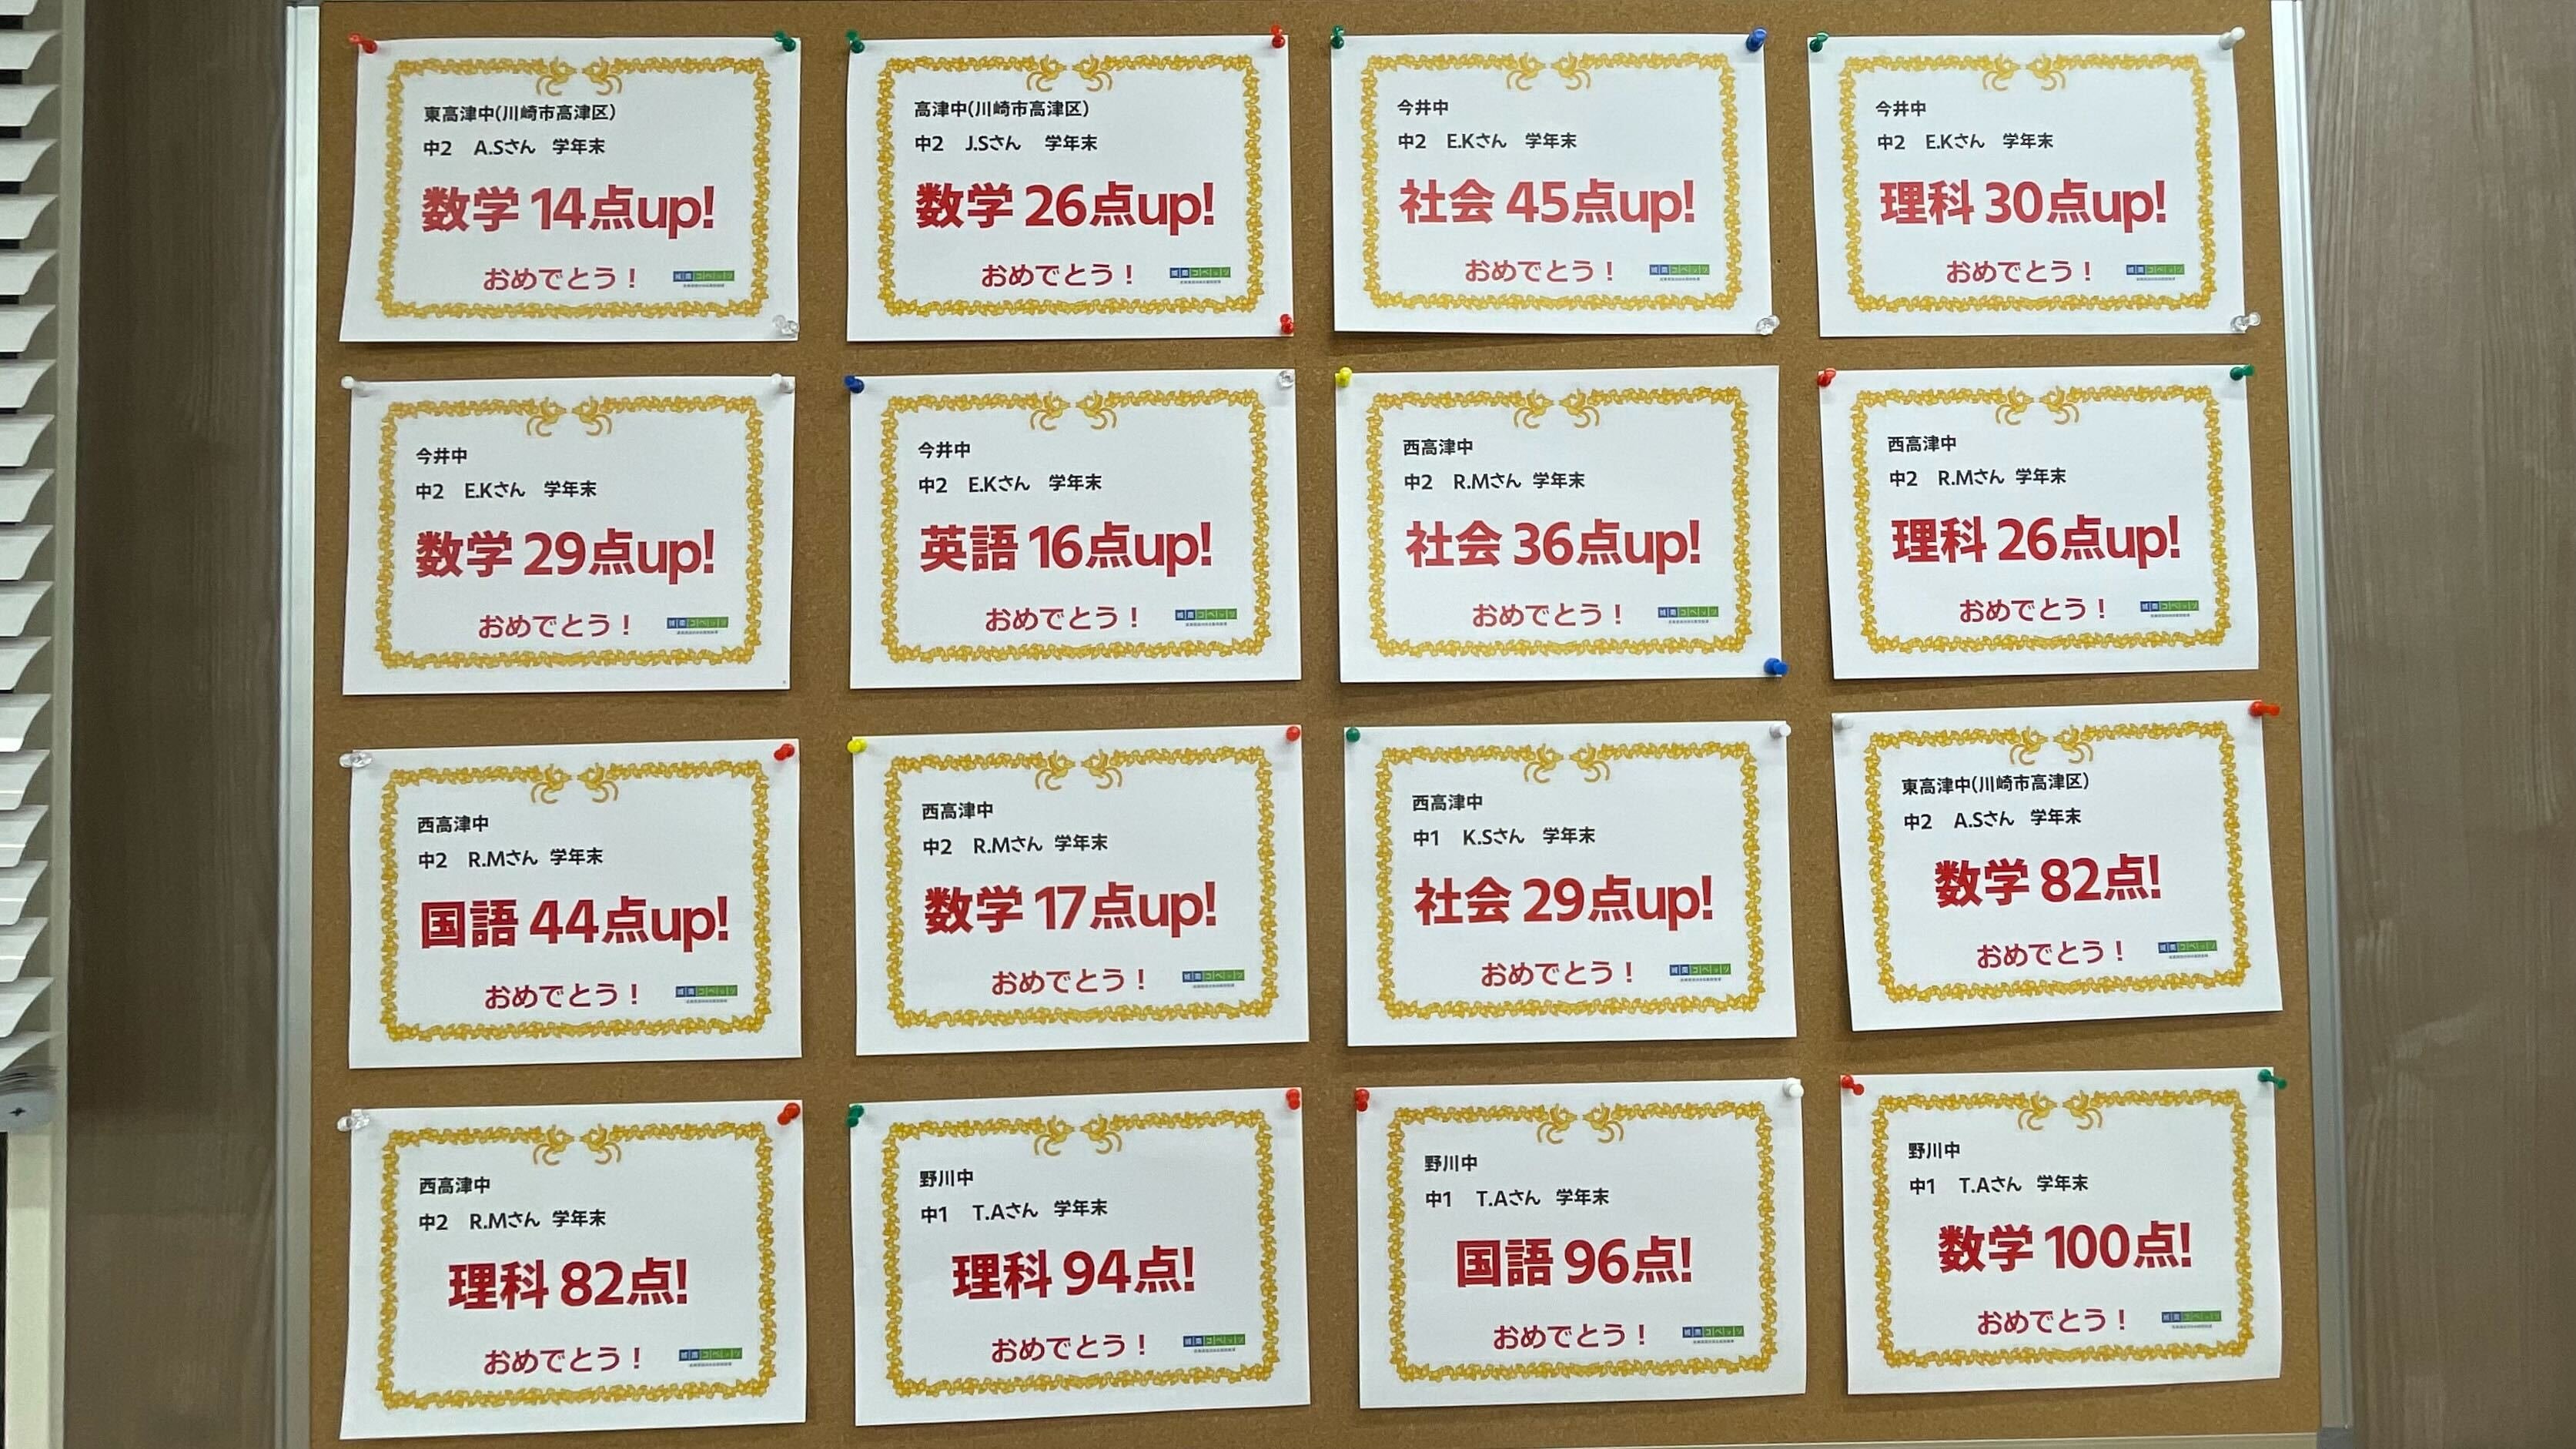 東高津中(川崎市高津区)
中2 A.Sさん 学年末
数学 14点up!
おめでとう！
城南コベッツ
高津中(川崎市高津区)
中2 J.Sさん 学年末
数学 26点up!
おめでとう！
城南コベッツ
今井中
中2 E.Kさん 学年末
社会 45点up!
おめでとう！
城南コベッツ
今井中
中2 E.Kさん 学年末
理科 30点up!
おめでとう！
城南コベッツ
今井中
中2 E.Kさん 学年末
数学 29点up!
おめでとう！
城南コベッツ
今井中
中2 E.Kさん 学年末
英語 16点up!
おめでとう！
城南コベッツ
西高津中
中2 R.Mさん 学年末
社会 36点up!
おめでとう！
城南コベッツ
西高津中
中2 R.Mさん 学年末
理科 26点up!
おめでとう！
城南コベッツ
西高津中
中2 R.Mさん 学年末
国語 44点up!
おめでとう！
城南コベッツ
西高津中
中2 R.Mさん 学年末
数学 17点up!
おめでとう！
城南コベッツ
西高津中
中1 K.Sさん 学年末
社会 29点up!
おめでとう！
城南コベッツ
東高津中(川崎市高津区)
中2 A.Sさん 学年末
数学 82点!
おめでとう！
城南コベッツ
西高津中
中2 R.Mさん 学年末
理科 82点!
おめでとう！
城南コベッツ
野川中
中1 T.Aさん 学年末
理科 94点!
おめでとう！
城南コベッツ
野川中
中1 T.Aさん 学年末
国語 96点!
おめでとう！
城南コベッツ
野川中
中1 T.Aさん 学年末
数学 100点!
おめでとう！
城南コベッツ